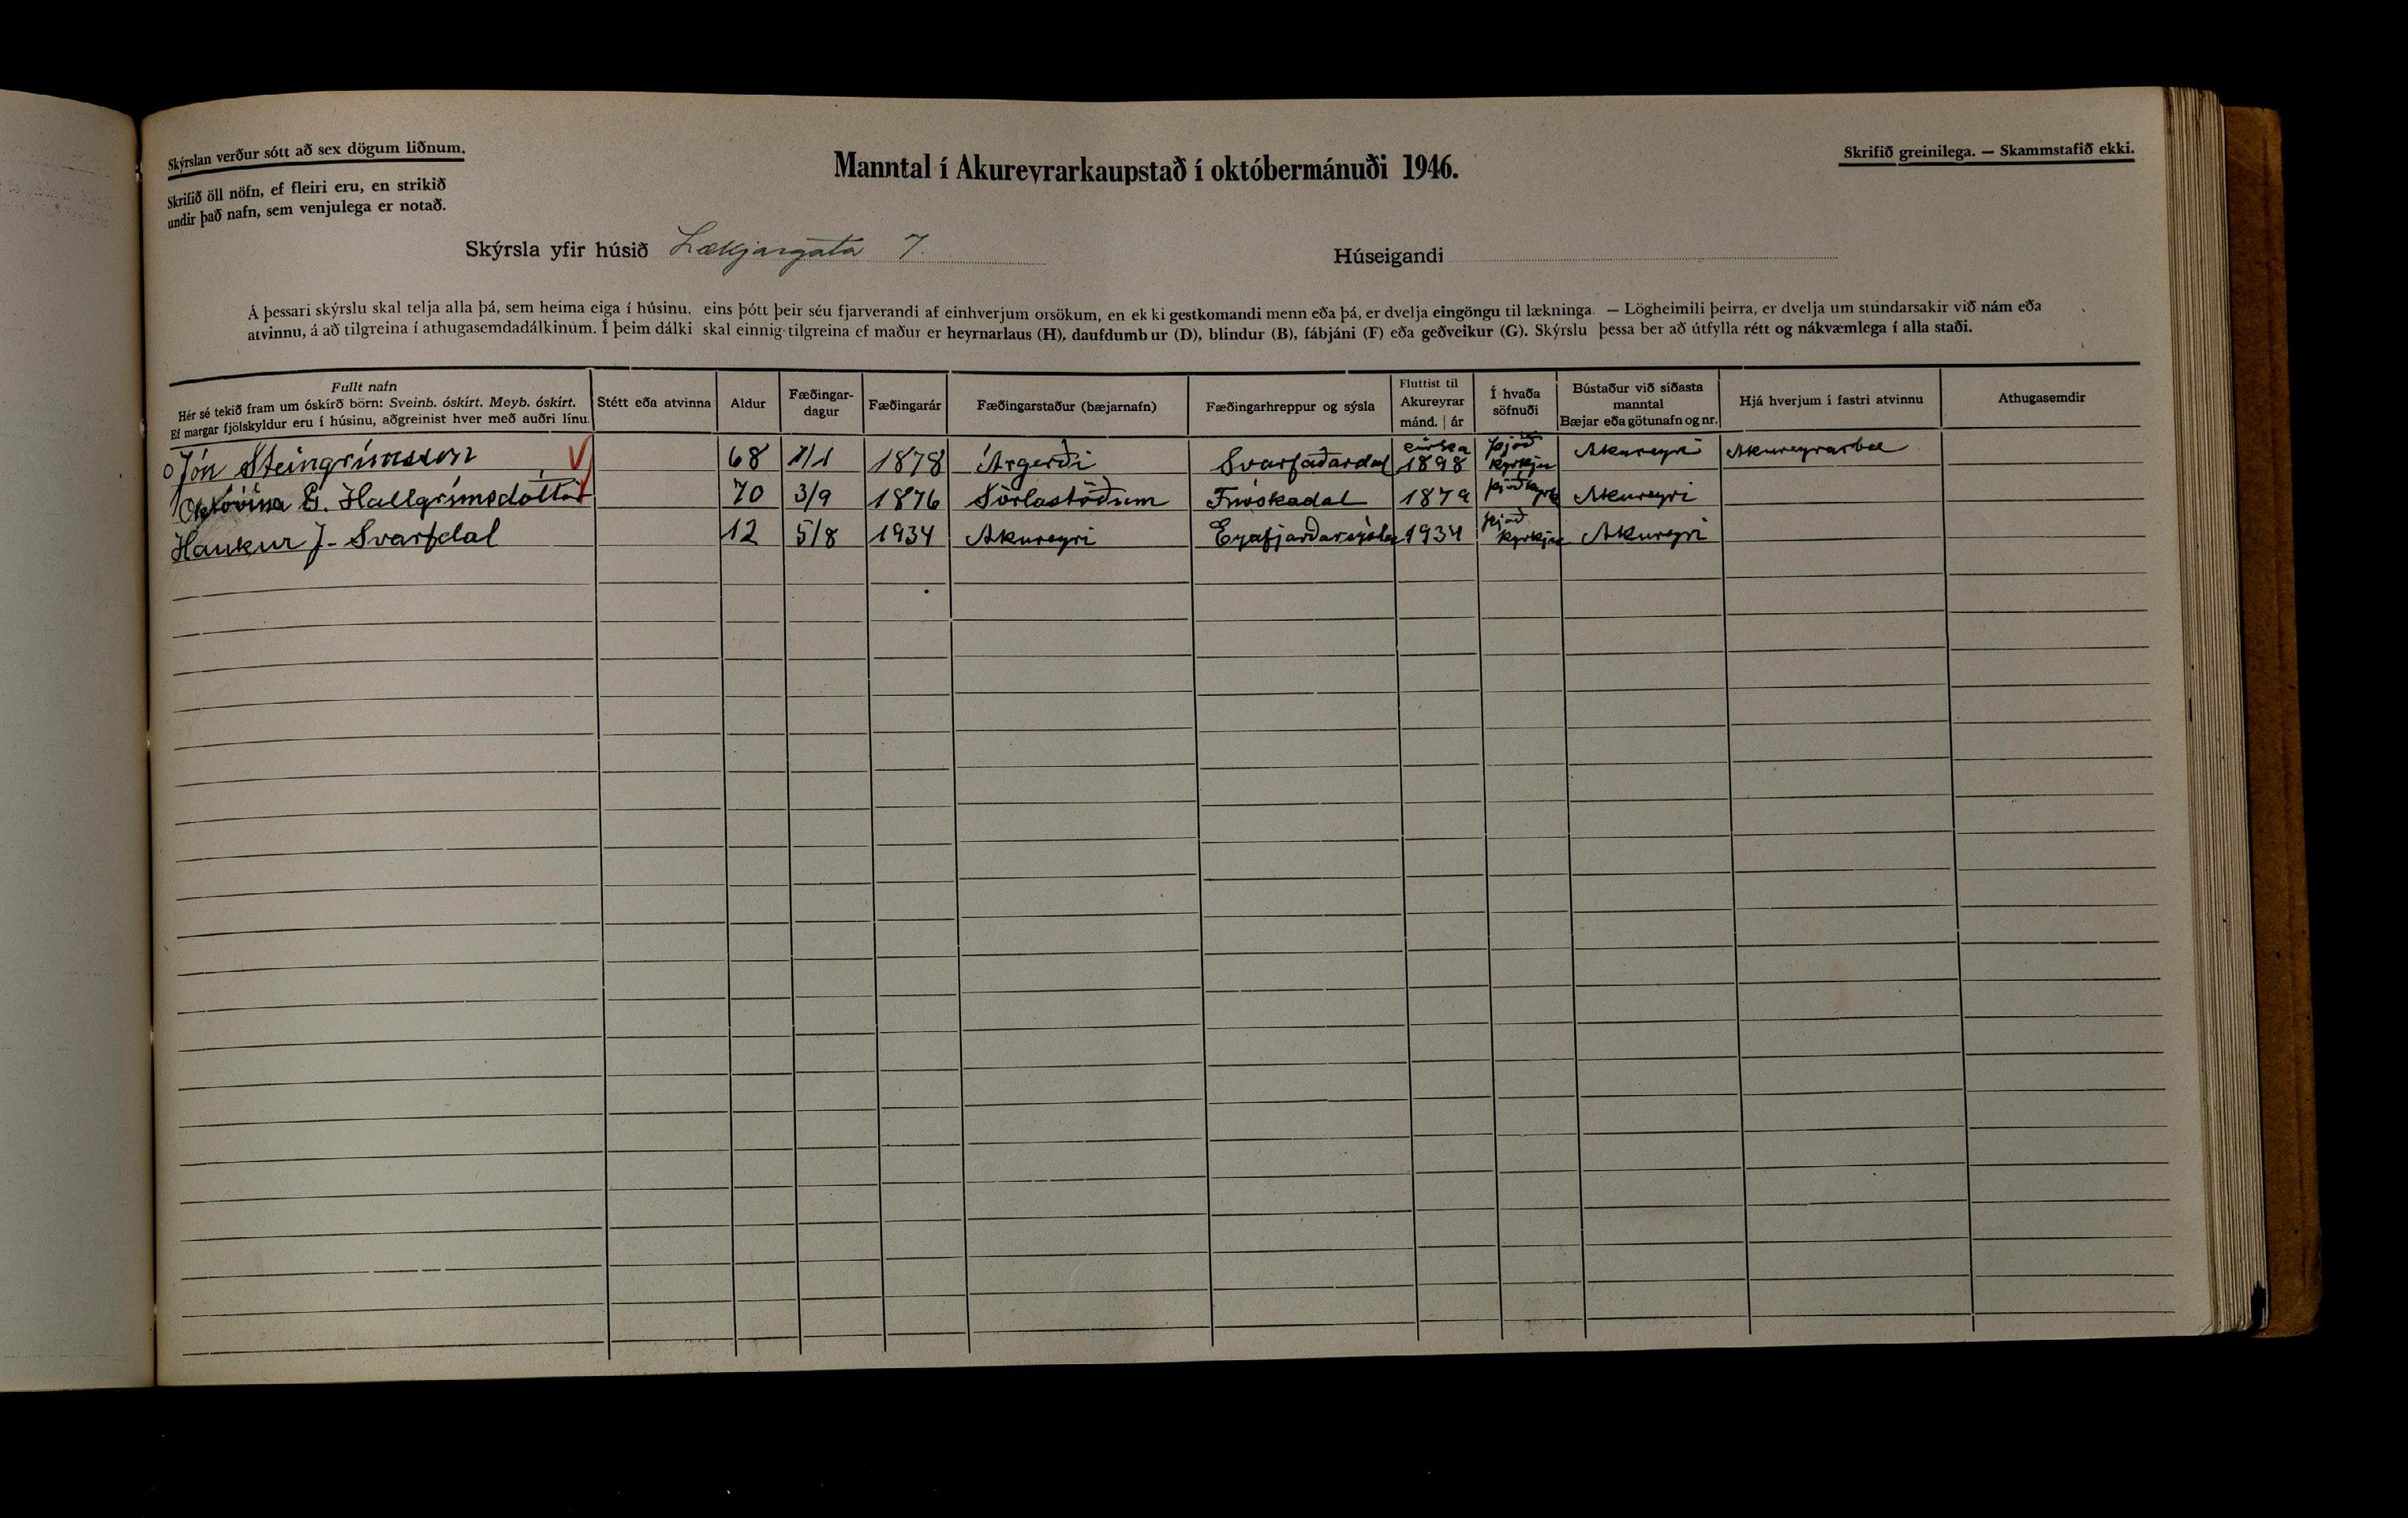 Skýrslan verður sótt að sex dögum liðnum.
Skrifið öll nöfn, ef fleiri eru, en strikið
undir það nafn, sem venjulega er notað.
Manntal í Akureyrarkaupstað í októbermánuði 1946.
Skrifið greinilega. — Skammstafið ekki.
Skýrsla yfir húsið Lækjargata 7.
Húseigandi
Á þessari skýrslu skal telja alla þá, sem heima eiga í húsinu, eins þótt þeir séu fjarverandi af einhverjum orsökum, en ekki gestkomandi menn eða þá, er dvelja eingöngu til lækninga. — Lögheimili þeirra, er dvelja um stundarsakir við nám eða
atvinnu, á að tilgreina í athugasemdadálkinum. Í þeim dálki skal einnig tilgreina ef maður er heyrnarlaus (H), daufdumbur (D), blindur (B), fábjáni (F) eða geðveikur (G). Skýrslu þessa ber að útfylla rétt og nákvæmlega í alla staði.
Fullt nafn
Hér sé tekið fram um óskírð börn: Sveinb. óskírt. Meyb. óskírt.
Ef margar fjölskyldur eru í húsinu, aðgreinist hver með auðri línu.
Stétt eða atvinna
Aldur
Fæðingar-
dagur
Fæðingarár
Fæðingarstaður (bæjarnafn)
Fæðingarhreppur og sýsla
Fluttist til
Akureyrar
mánd. | ár
Í hvaða
söfnuði
Bústaður við síðasta
manntal
Bæjar eða götunafn og nr.
Hjá hverjum í fastri atvinnu
Athugasemdir
Jón Steingrímsson 68 1/1 1878 Árgerði Svarfaðardal cirka 1898 þjóð kyrkju Akureyri Akureyrarbæ
Októvína G. Hallgrímsdóttir 70 3/9 1876 Sörlastöðum Fnóskadal 1879 þjóðkyrk Akureyri
Haukur J. Svarfdal 12 5/8 1934 Akureyri Eyafjarðarsýsla 1934 þjóð kyrkju Akureyri